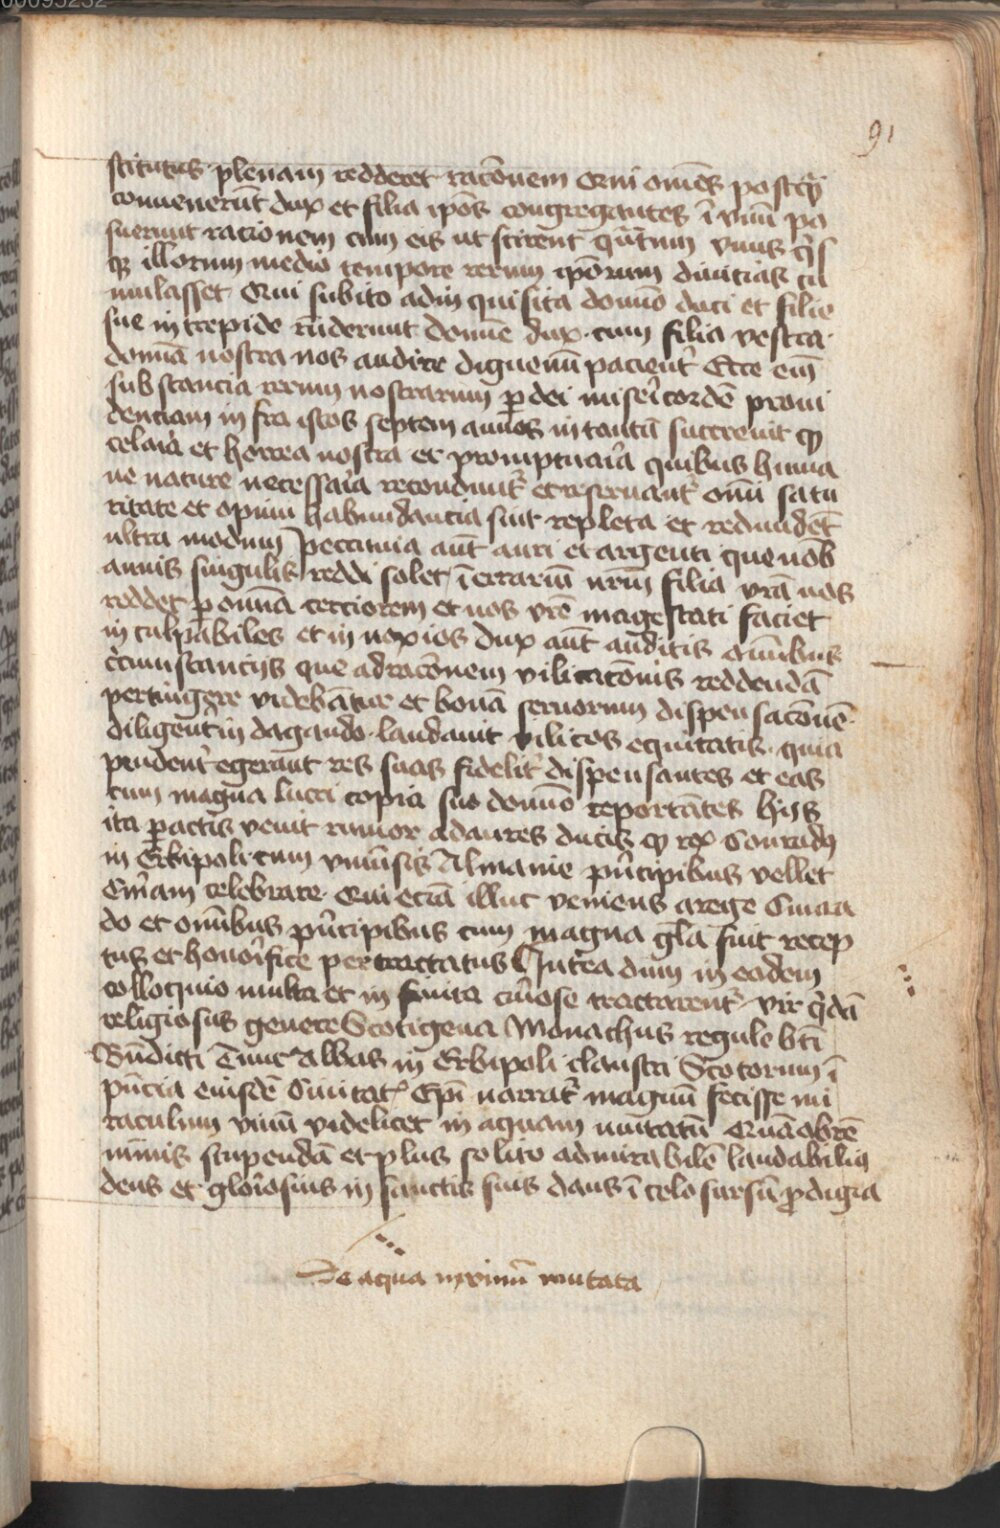 00095232
91
stitutus plenam redderet racōnem Qui om̄es postq̄
convenerūt dux et filia ip̄os congregantes ī vnū po
suerunt racionem cum eis ut scirent qūtum vnus q̄s
q illorum medio tempore rerum ip̄orum divitias cu
mulasset Qui subito ad inquisita domīo duci et filie
sue intrepide rn̄derunt domīe dux cum filia vestra
domīa nostra nos audire dignemī pacient̄ Ecce em̄
substancia rerum nostrarum p dei mis̄icordē provi
denciam infra istos septem annos in tantū succrevit q
celaīa et horrea nostra et promptuaīa quibus huma
ne nature necessaīa recondunt̄ et reservant̄ om̄i satu
ritate et opima habundancia sunt repleta et redundēt
ultra modum Peccunia aūt auri et argenti que nob̄
annis singulis reddi solet ī errariū nr̄m filia vr̄a nos
reddet p om̄ia cerciorem et nos vr̄e magestati faciet
inculpabiles et innoxios dux aūt auditis om̄ibus
c̄cumstancijs que ad racōnem vilicacōnis reddendā
pertingere videbātur et bonā servorum dispensacōnē
diligent̄ indagando laudavit vilicos equitatis quia
prudent̄ egerant res suas fidelit̄ dispensantes et eas
cum magna lucri copia suo domīo reportātes hijs
ita pactis venit rumor ad aures ducis q rex Conradus
in Erbipoli cum vniūsis Almanie p̄ncipibus vellet
Cūiam celebrare Qui eciā illuc veniens a rege Cunra
do et om̄ibus p̄ncipibus cum magna gl̄a fuit recep
tus et hono̅ifice pertractatus Int̄ea dum in eodem
colloquio multa et infinita cūiose tractarent̄ vir q̄dā
religiosus genere Scotigena Monachus regule bt̄i
Bn̄dicti Tunc abbas in Erbipoli claustri Scotorum ī
p̄ncia eiusdē Civitat̄ Ep̄i narrat̄ magnū fecisse mi
raculum vinū videlicet in aquam mutatū Quā ob rē
nimis stupendā et plus solito admirabilē laudabiliꝰ
deus et glōiosus in sanctis suis dans ī celo sursū pdigia
De aqua in vinū mutata